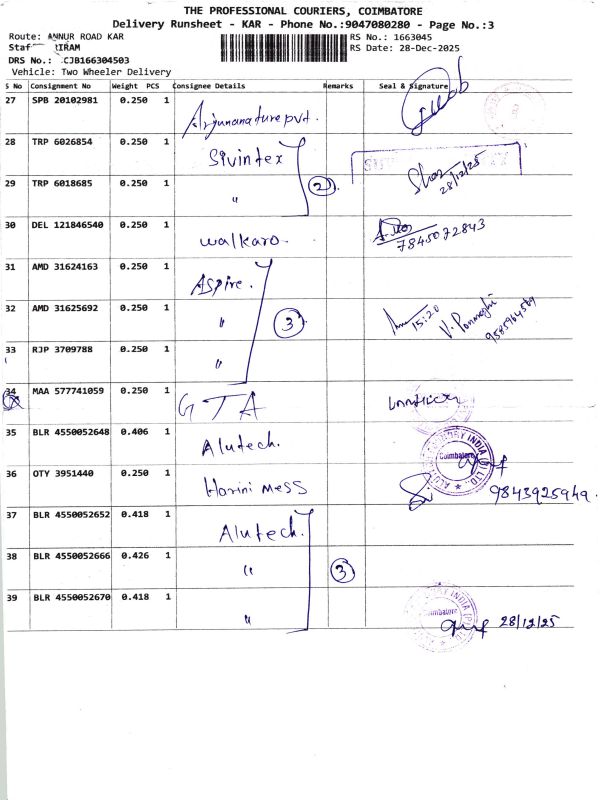 THE PROFESSIONAL COURIERS, COIMBATORE
Delivery Runsheet - KAR - Phone No.:9047080280 - Page No.:3
Route: ANNUR ROAD KAR
RS No.: 1663045
Staf IRAM
RS Date: 28-Dec-2025
DRS No.: CJB166304503
Vehicle: Two Wheeler Delivery
S No Consignment No Weight PCS Consignee Details Remarks Seal & Signature
27 SPB 20102981 0.250 1 Arjunanature pvt.
28 TRP 6026854 0.250 1 Sivintex
29 TRP 6018685 0.250 1 " 2 28/12/25
30 DEL 121846540 0.250 1 walkaro 7845072843
31 AMD 31624163 0.250 1 Aspire.
32 AMD 31625692 0.250 1 " 3 15:20 9585964569
33 RJP 3709788 0.250 1 "
34 MAA 577741059 0.250 1 GTA
35 BLR 4550052648 0.406 1 Alutech. Coimbatore
36 OTY 3951440 0.250 1 Harini Mess 9843925949.
37 BLR 4550052652 0.418 1 Alutech.
38 BLR 4550052666 0.426 1 " 3
39 BLR 4550052670 0.418 1 " Coimbatore 28/12/25